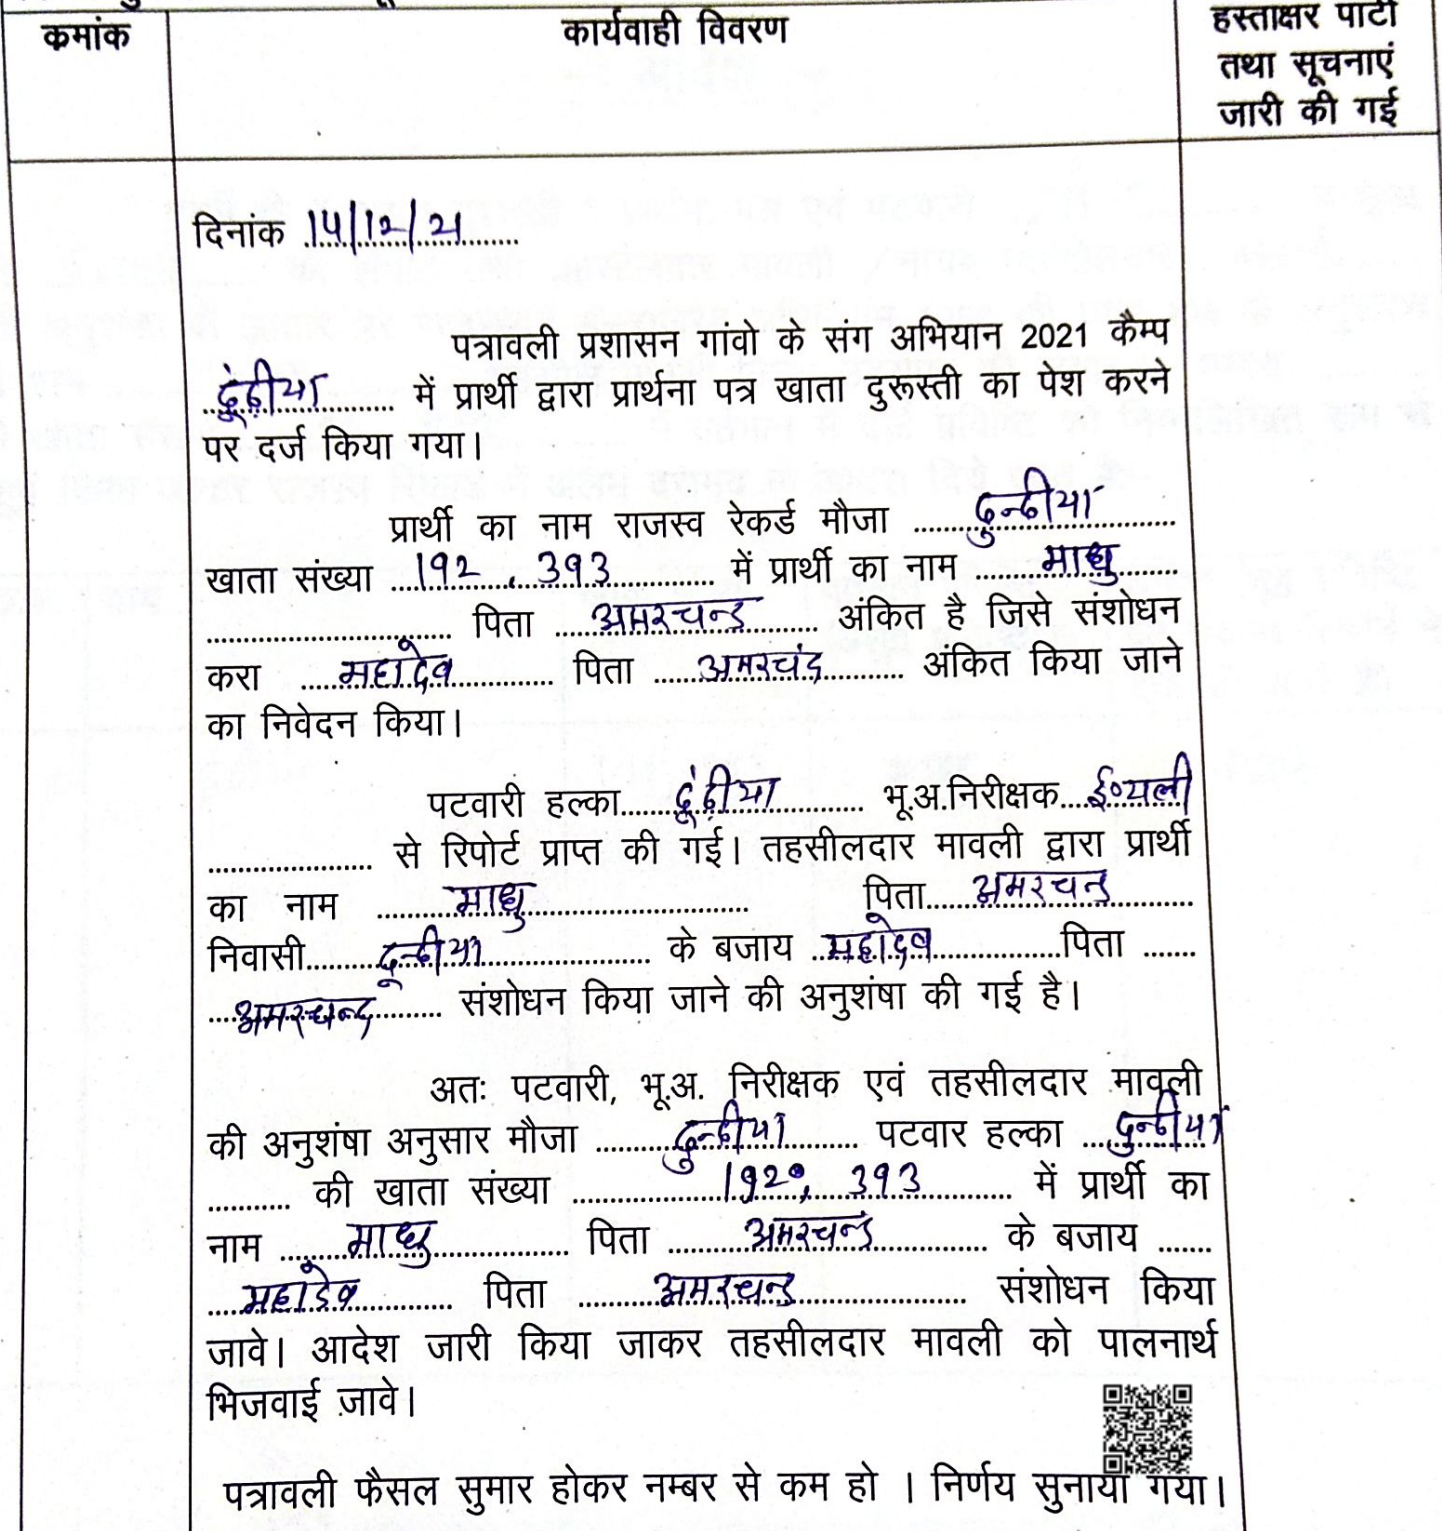 क्रमांक
कार्यवाही विवरण
हस्ताक्षर पार्टी
तथा सूचनाएं
जारी की गई
दिनांक 14/12/21
पत्रावली प्रशासन गांवो के संग अभियान 2021 कैम्प
ढूंढ़ीया में प्रार्थी द्वारा प्रार्थना पत्र खाता दुरूस्ती का पेश करने
पर दर्ज किया गया।
प्रार्थी का नाम राजस्व रेकर्ड मौजा ढुन्ढीया
खाता संख्या 192, 393 में प्रार्थी का नाम माधु
पिता अमरचन्द्र अंकित है जिसे संशोधन
करा महादेव पिता अमरचंद्र अंकित किया जाने
का निवेदन किया।
पटवारी हल्का ढूंढ़ीया भू.अ.निरीक्षक
से रिपोर्ट प्राप्त की गई। तहसीलदार मावली द्वारा प्रार्थी
का नाम माधु पिता अमरचन्द्र
निवासी ढून्ढीया के बजाय महादेव पिता
अमरचन्द संशोधन किया जाने की अनुशंषा की गई है।
अतः पटवारी, भू.अ. निरीक्षक एवं तहसीलदार मावली
की अनुशंषा अनुसार मौजा ढुन्ढीया पटवार हल्का ढुन्ढीया
की खाता संख्या 192, 393 में प्रार्थी का
नाम माधु पिता अमरचन्द्र के बजाय
महादेव पिता अमरचन्द्र संशोधन किया
जावे। आदेश जारी किया जाकर तहसीलदार मावली को पालनार्थ
भिजवाई जावे।
पत्रावली फैसल सुमार होकर नम्बर से कम हो । निर्णय सुनाया गया।